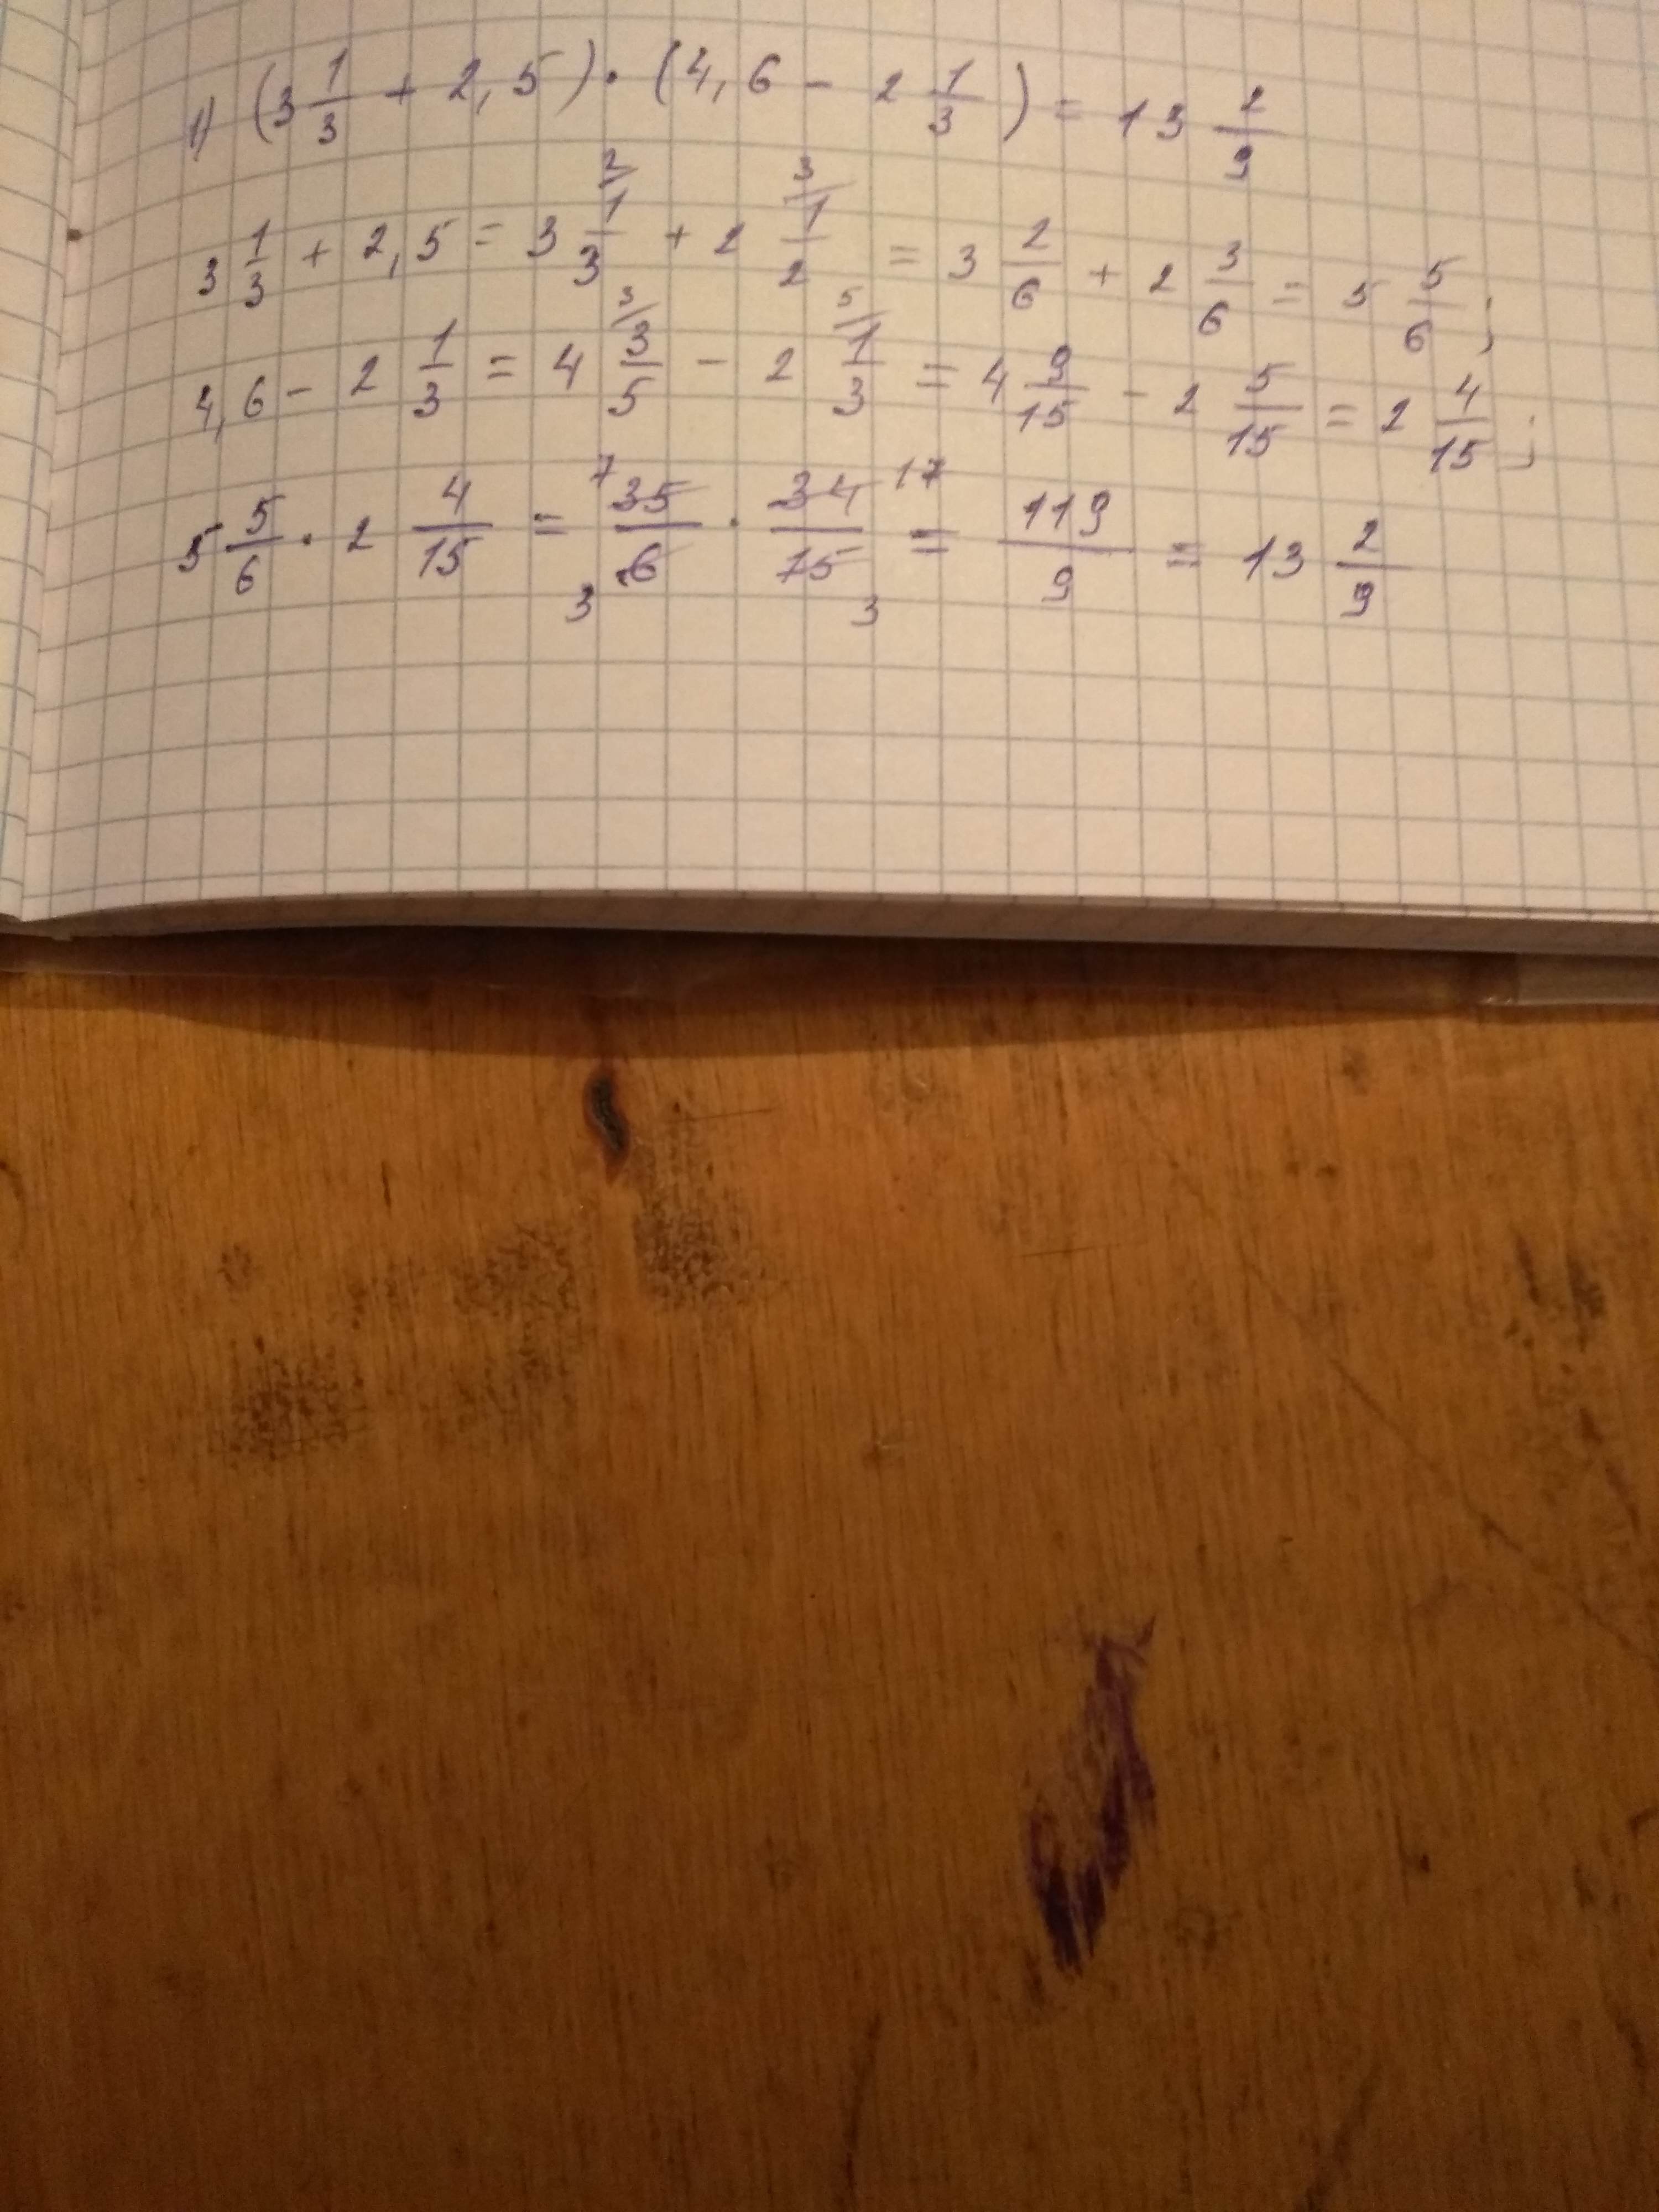 1) (3 1/3 + 2,5) · (4,6 - 2 1/3) = 13 2/9
3 1/3 + 2,5 = 3 1/3 (2/) + 2 1/2 (3/) = 3 2/6 + 2 3/6 = 5 5/6 ;
4,6 - 2 1/3 = 4 3/5 (3/) - 2 1/3 (5/) = 4 9/15 - 2 5/15 = 2 4/15 ;
5 5/6 · 2 4/15 = 7 35/6 3 · 34/15 17 3 = 119/9 = 13 2/9